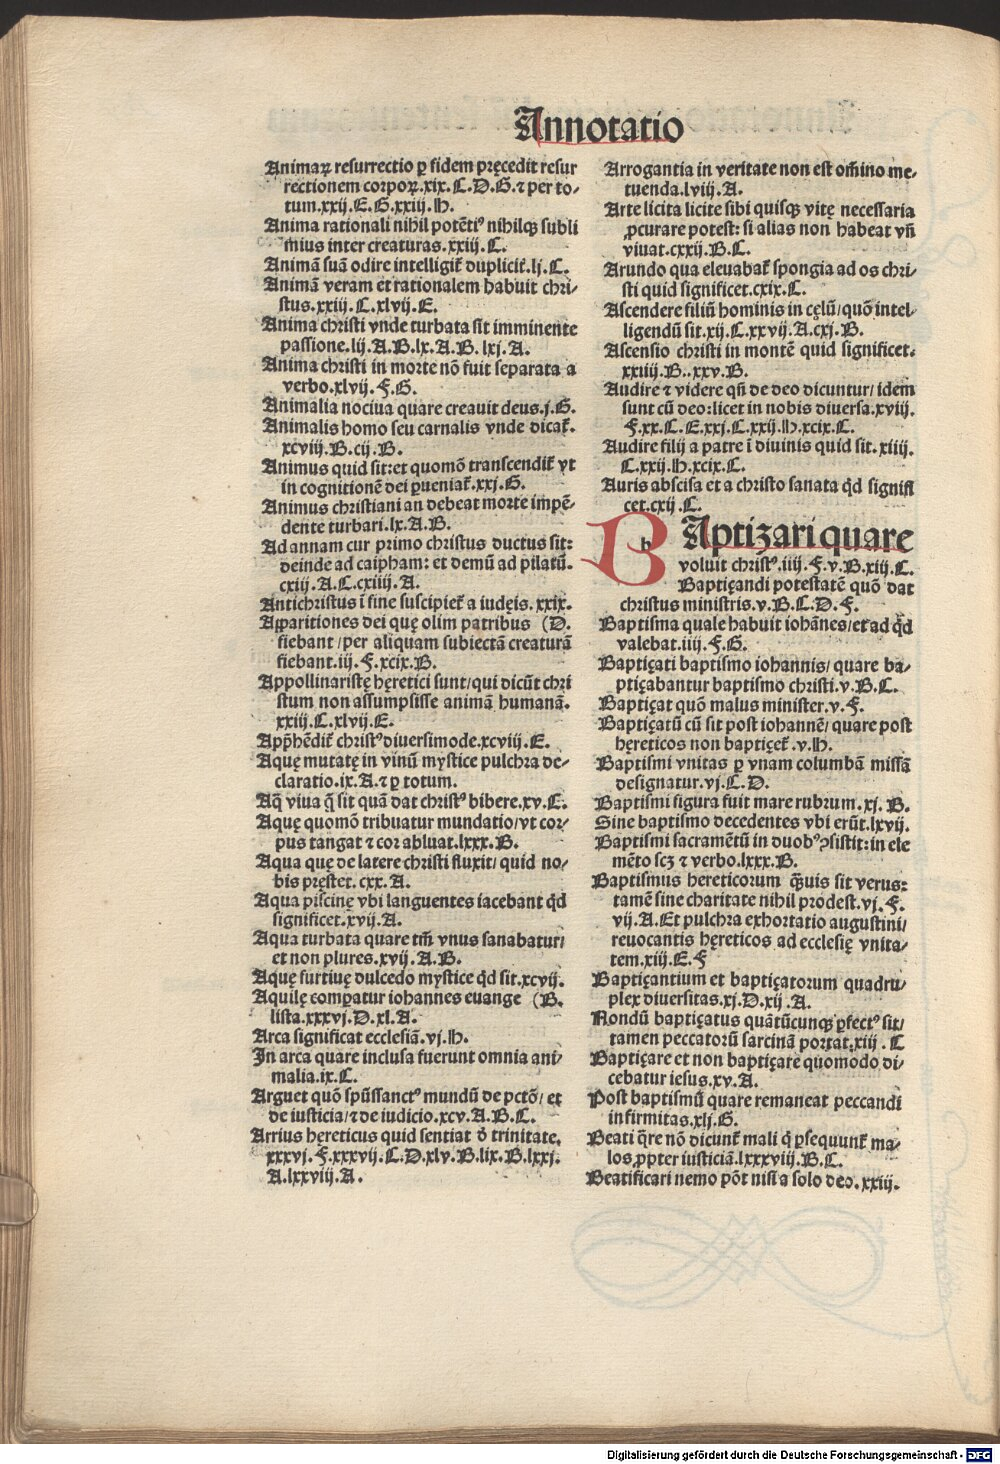 Annotatio
Animaꝝ resurrectio ꝑ fidem pręcedit resur
rectionem corpoꝝ.xix.C.D.G.⁊ per to-
tum.xxij.E.G.xxiij.H.
Anima rationali nihil potētiꝰ nihilqꝫ subli
mius inter creaturas.xxiij.C.
Animā suā odire intelligit̃ dupliciť.lj.C.
Animā veram et rationalem habuit chri-
stus.xxiij.C.xlvij.E.
Anima christi vnde turbata sit imminente
passione.lij.A.B.lx.A.B.lxj.A.
Anima christi in morte nō fuit separata a
verbo.xlvij.F.G.
Animalia nociua quare creauit deus.j.G.
Animalis homo seu carnalis vnde dicat̃.
xcviij.B.cij.B.
Animus quid sit:et quomō transcendit̃ vt
in cognitionē dei ꝑueniat̃.xxj.G.
Animus christiani an debeat morte impē-
dente turbari.lx.A.B.
Ad annam cur primo christus ductus sit:
deinde ad caipham: et demū ad pilatū.
cxiij.A.C.cxiiij.A.
Antichristus ī fine suscipiet̃ a iudęis.xxix.
Apparitiones dei quę olim patribus (D.
fiebant/per aliquam subiectā creaturā
fiebant.iij.F.xcix.B.
Appollinaristę hęretici sunt/qui dicūt chri
stum non assumpsisse animā humanā.
xxiij.C.xlvij.E.
App̄hēdit̃ christꝰ diuersimode.xcviij.E.
Aquę mutatę in vinū mystice pulchra de-
claratio.ix.A.⁊ ꝑ totum.
Aq̄ viua q̄ sit quā dat christꝰ bibere.xv.C.
Aquę quomō tribuatur mundatio/vt cor-
pus tangat ⁊ cor abluat.lxxx.B.
Aqua quę de latere christi fluxit/ quid no-
bis pręstet.cxx.A.
Aqua piscinę vbi languentes iacebant qd̄
significet.xvij.A.
Aqua turbata quare tm̄ vnus sanabatur/
et non plures.xvij.A.B.
Aquę furtiuę dulcedo mystice qd̄ sit.xcvij.
Aquilę comꝑatur iohannes euange (B.
lista.xxxvj.D.xl.A.
Arca significat ecclesiā.vj.H.
In arca quare inclusa fuerunt omnia ani-
malia.ix.C.
Arguet quō spūssanctꝰ mundū de pctō/ et
de iusticia/⁊ de iudicio.xcv.A.B.C.
Arrius hęreticus quid sentiat ð trinitate.
xxxvj.F.xxxvij.C.D.xlv.B.lix.B.lxxj.
A.lxxviij.A.
Arrogantia in veritate non est om̄ino me-
tuenda.lviij.A.
Arte licita licite sibi quisqꝫ vitę necessaria
ꝓcurare potest: si alias non habeat vn̄
viuat.cxxij.B.C.
Arundo qua eleuabat̃ spongia ad os chri-
sti quid significet.cxix.C.
Ascendere filiū hominis in cęlū/quō intel-
ligendū sit.xij.C.xxvij.A.cxj.B.
Ascensio christi in montē quid significet.
xxiiij.B..xxv.B.
Audire ⁊ videre qn̄ de deo dicuntur/ idem
sunt cū deo:licet in nobis diuersa.xviij.
F.xx.C.E.xxj.C.xxij.H.xcix.C.
Audire filij a patre ī diuinis quid sit.xiiij.
C.xxij.H.xcix.C.
Auris abscisa et a christo sanata qd̄ signifi
cet.cxij.C.
BAptizari quare
voluit christꝰ.iiij.F.v.B.xiij.C.
Baptiçandi potestatē quō dat
christus ministris.v.B.C.D.F.
Baptisma quale habuit iohānes/et ad qd̄
valebat.iiij.F.G.
Baptiçati baptismo iohannis/ quare ba-
ptiçabantur baptismo christi.v.B.C.
Baptiçat quō malus minister.v.F.
Baptiçatū cū sit post iohannē/ quare post
hęreticos non baptiçet̃.v.H.
Baptismi vnitas ꝑ vnam columbā missā
designatur.vj.C.D.
Baptismi figura fuit mare rubrum.xj.B.
Sine baptismo decedentes vbi erūt.lxvij.
Baptismi sacramētū in duobꝰ ꝯsistit:in ele
mēto scꝫ ⁊ verbo.lxxx.B.
Baptismus hereticorum q̃uis sit verus:
tamē sine charitate nihil prodest.vj.F.
vij.A.Et pulchra exhortatio augustini/
reuocantis hęreticos ad ecclesię vnita-
tem.xiij.E.F
Baptiçantium et baptiçatorum quadru-
plex diuersitas.xj.D.xij.A.
Nondū baptiçatus quātūcunqꝫ ꝑfectꝰ sit/
tamen peccatorū sarcinā portat.xiij.C
Baptiçare et non baptiçare quomodo di-
cebatur iesus.xv.A.
Post baptismū quare remaneat peccandi
infirmitas.xlj.G.
Beati q̄re nō dicunt̃ mali q̇ ꝑsequunt̃ ma-
los ꝓpter iusticiā.lxxxviij.B.C.
Beatificari nemo pōt nisi a solo deo.xxiij.
Digitalisierung gefördert durch die Deutsche Forschungsgemeinschaft - DFG